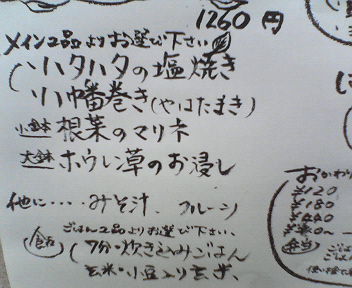 1260円
メイン2品よりお選び下さい
ハタハタの塩焼き
八幡巻き(やはたまき)
小鉢 根菜のマリネ
大鉢 ホウレン草のお浸し
他に‥‥みそ汁、フルーツ
ごはん2品よりお選び下さい、
飯 7分・炊き込みごはん
玄米・小豆入り玄米、
おかわり
¥120
¥180
¥440
弁当